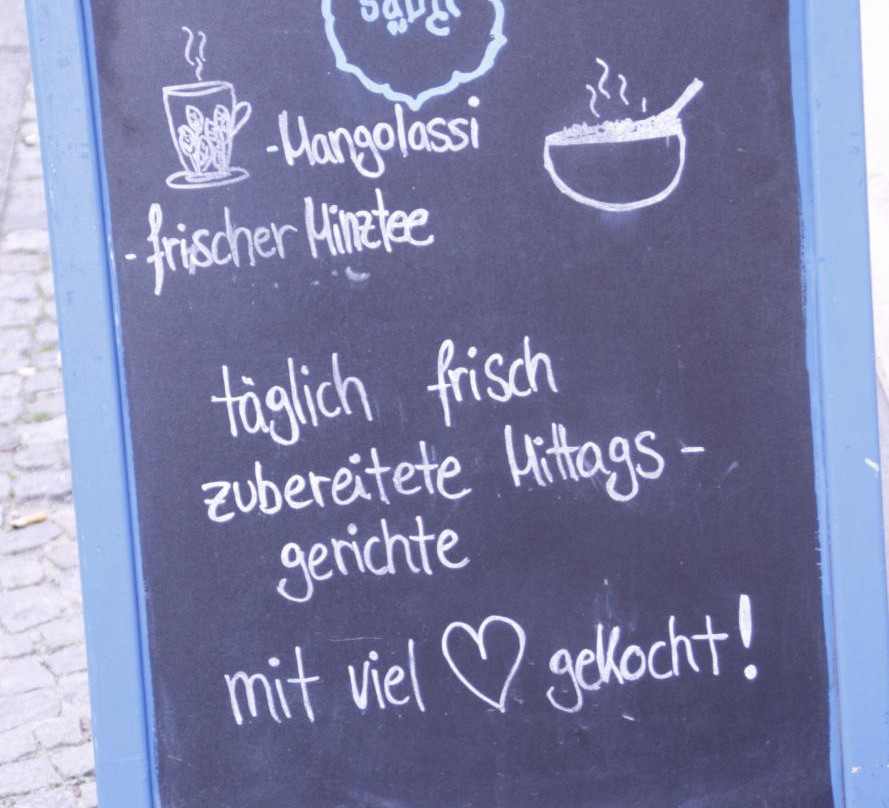 -Mangolassi
-frischer Minztee
täglich frisch
zubereitete Mittags-
gerichte
mit viel ♡ gekocht!